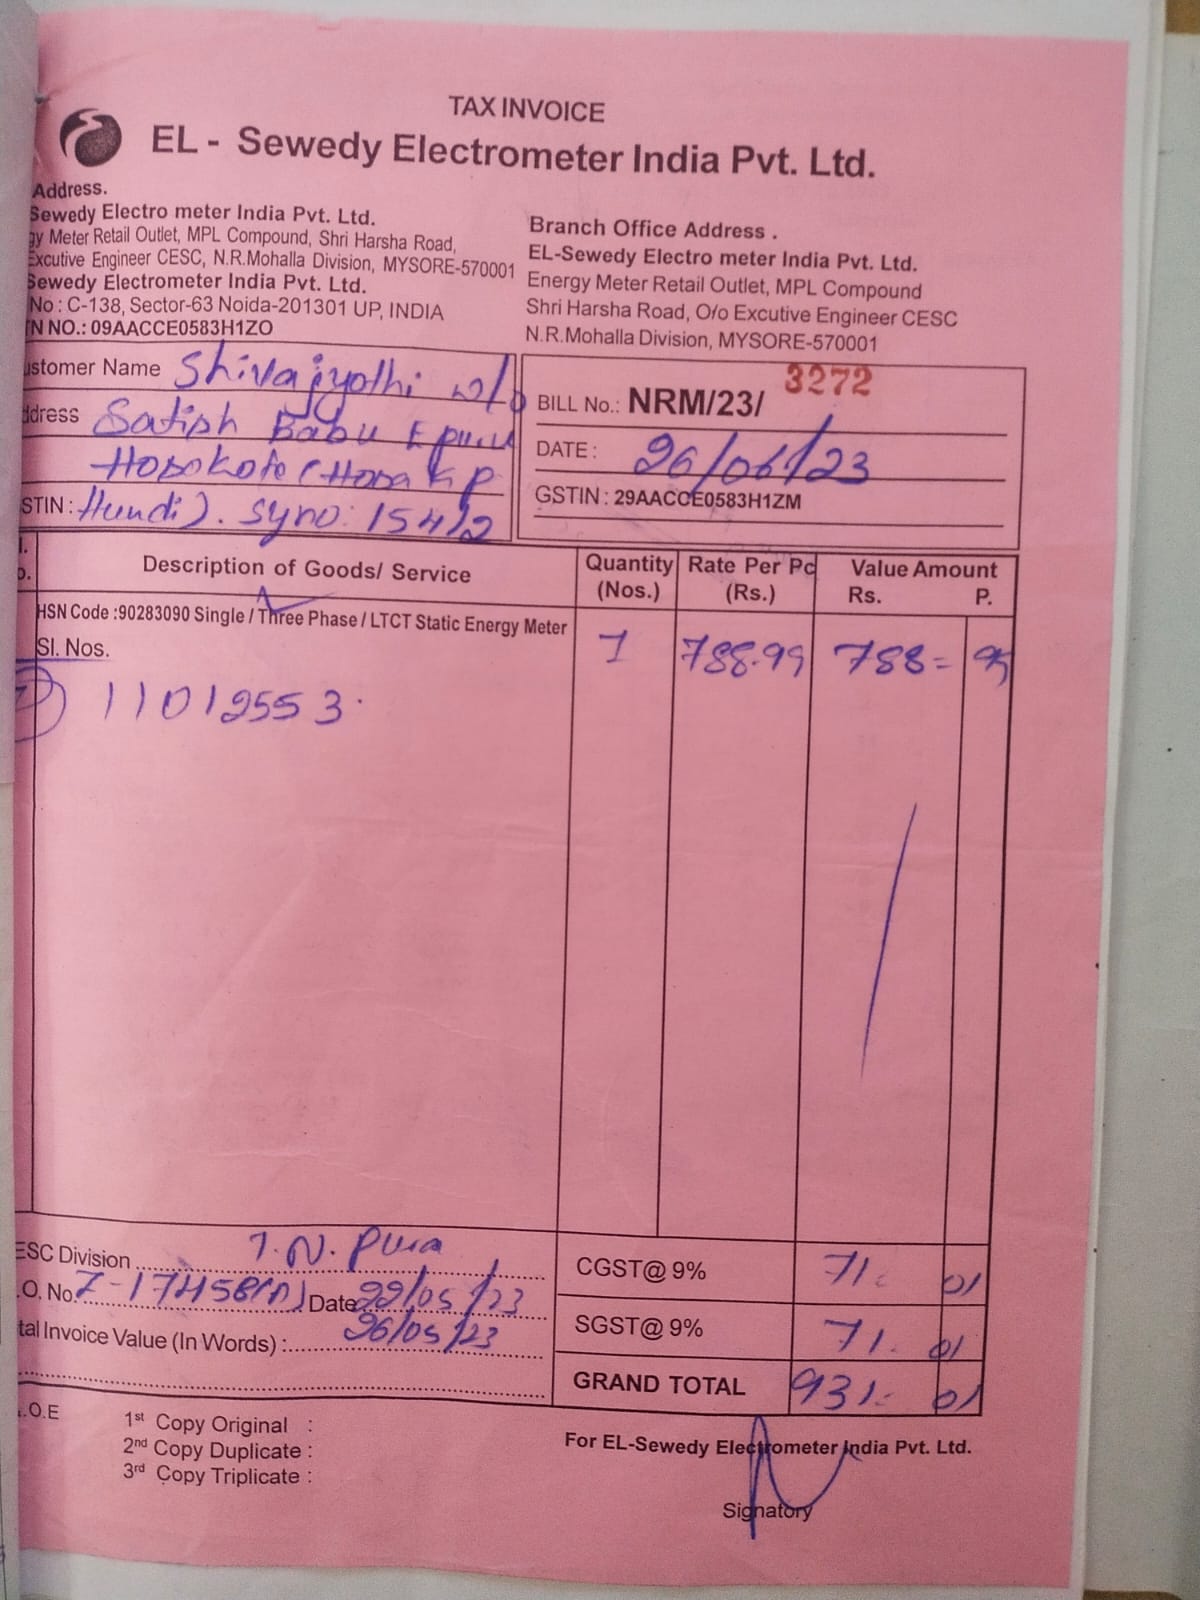 TAX INVOICE
EL - Sewedy Electrometer India Pvt. Ltd.
Address.
Sewedy Electro meter India Pvt. Ltd.
gy Meter Retail Outlet, MPL Compound, Shri Harsha Road,
Excutive Engineer CESC, N.R.Mohalla Division, MYSORE-570001
Sewedy Electrometer India Pvt. Ltd.
No : C-138, Sector-63 Noida-201301 UP, INDIA
TN NO.: 09AACCE0583H1ZO
Branch Office Address .
EL-Sewedy Electro meter India Pvt. Ltd.
Energy Meter Retail Outlet, MPL Compound
Shri Harsha Road, O/o Excutive Engineer CESC
N.R.Mohalla Division, MYSORE-570001
ustomer Name Shivajyothi w/o
ddress Satish Babu
Hosokote (Hosa K P
STIN : Hundi). Syno: 154/2
BILL No.: NRM/23/ 3272
DATE : 26/06/23
GSTIN : 29AACCE0583H1ZM
Description of Goods/ Service Quantity (Nos.) Rate Per Pc (Rs.) Value Amount Rs. P.
HSN Code :90283090 Single / Three Phase / LTCT Static Energy Meter
Sl. Nos. 1 788.99 788=
11012553
ESC Division T.N. Pura
.O. No. Date 22/05/23
26/05/23
tal Invoice Value (In Words) :
CGST@ 9% 71. 01
SGST@ 9% 71. 01
GRAND TOTAL 931- 01
.O.E
1st Copy Original :
2nd Copy Duplicate :
3rd Copy Triplicate :
For EL-Sewedy Electrometer India Pvt. Ltd.
Signatory